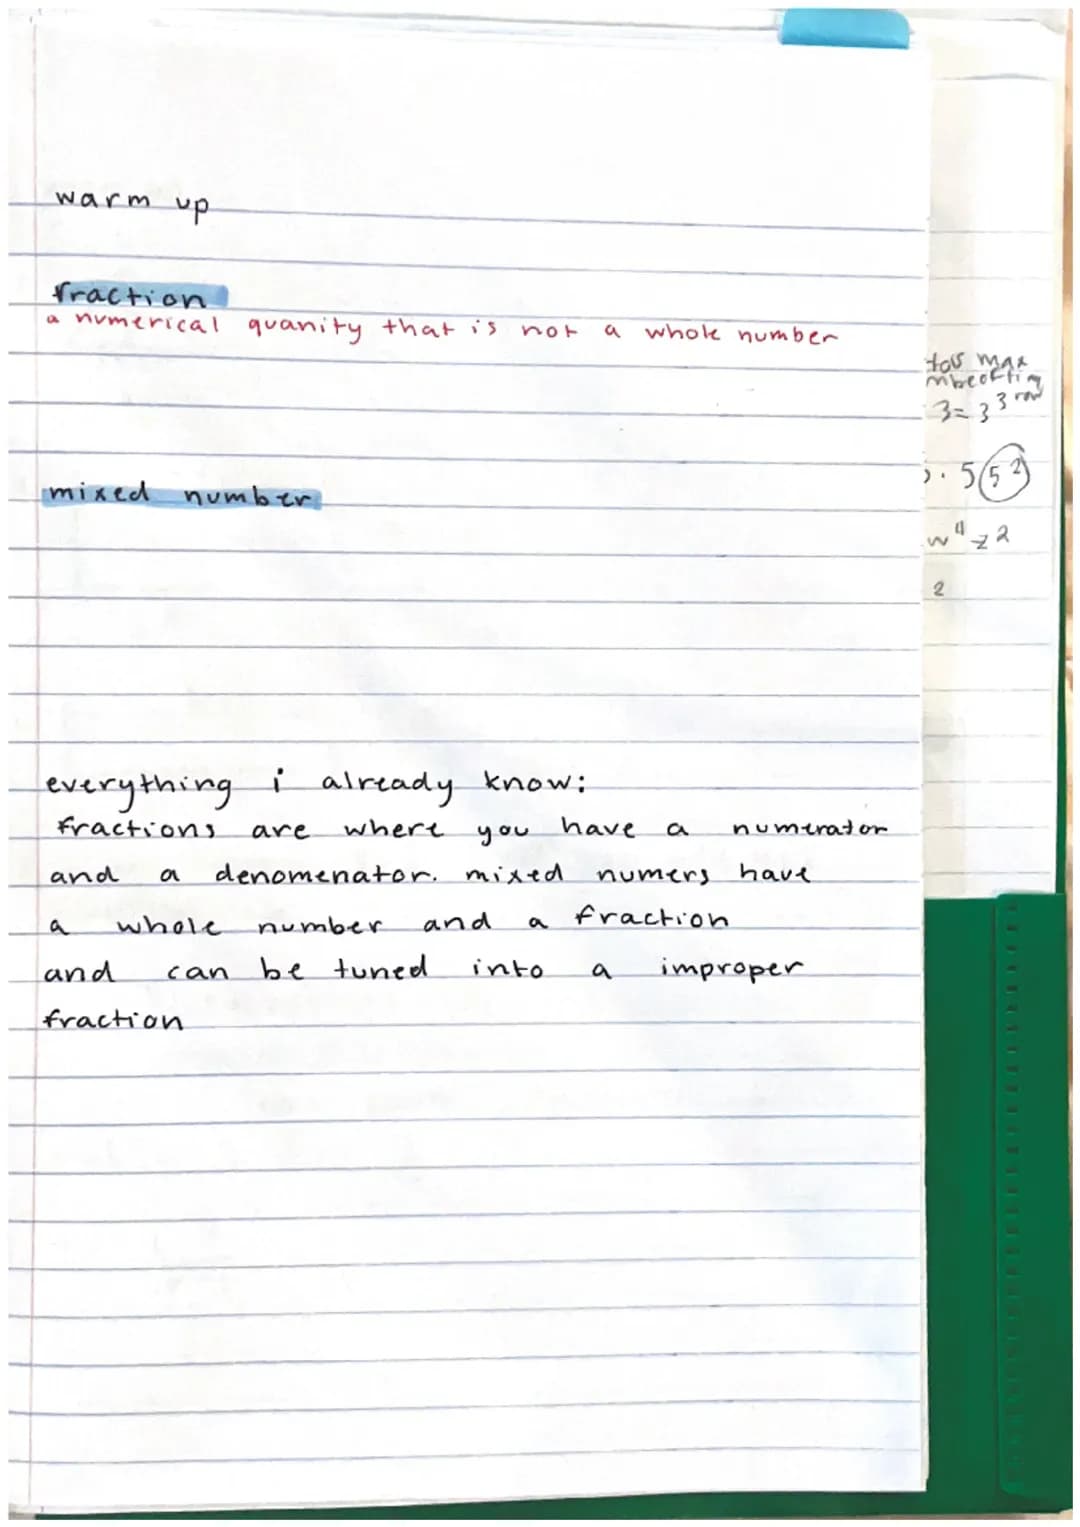 warm up
fraction
a numerical quanity that is not a whole number
mixed number
everything i already know:
fractions are where you have a numerator
and a denomenator. mixed numers have
a whole number and a fraction
and can be tuned into a improper
fraction
max
3=3³
5(5²)
w⁴z²
2